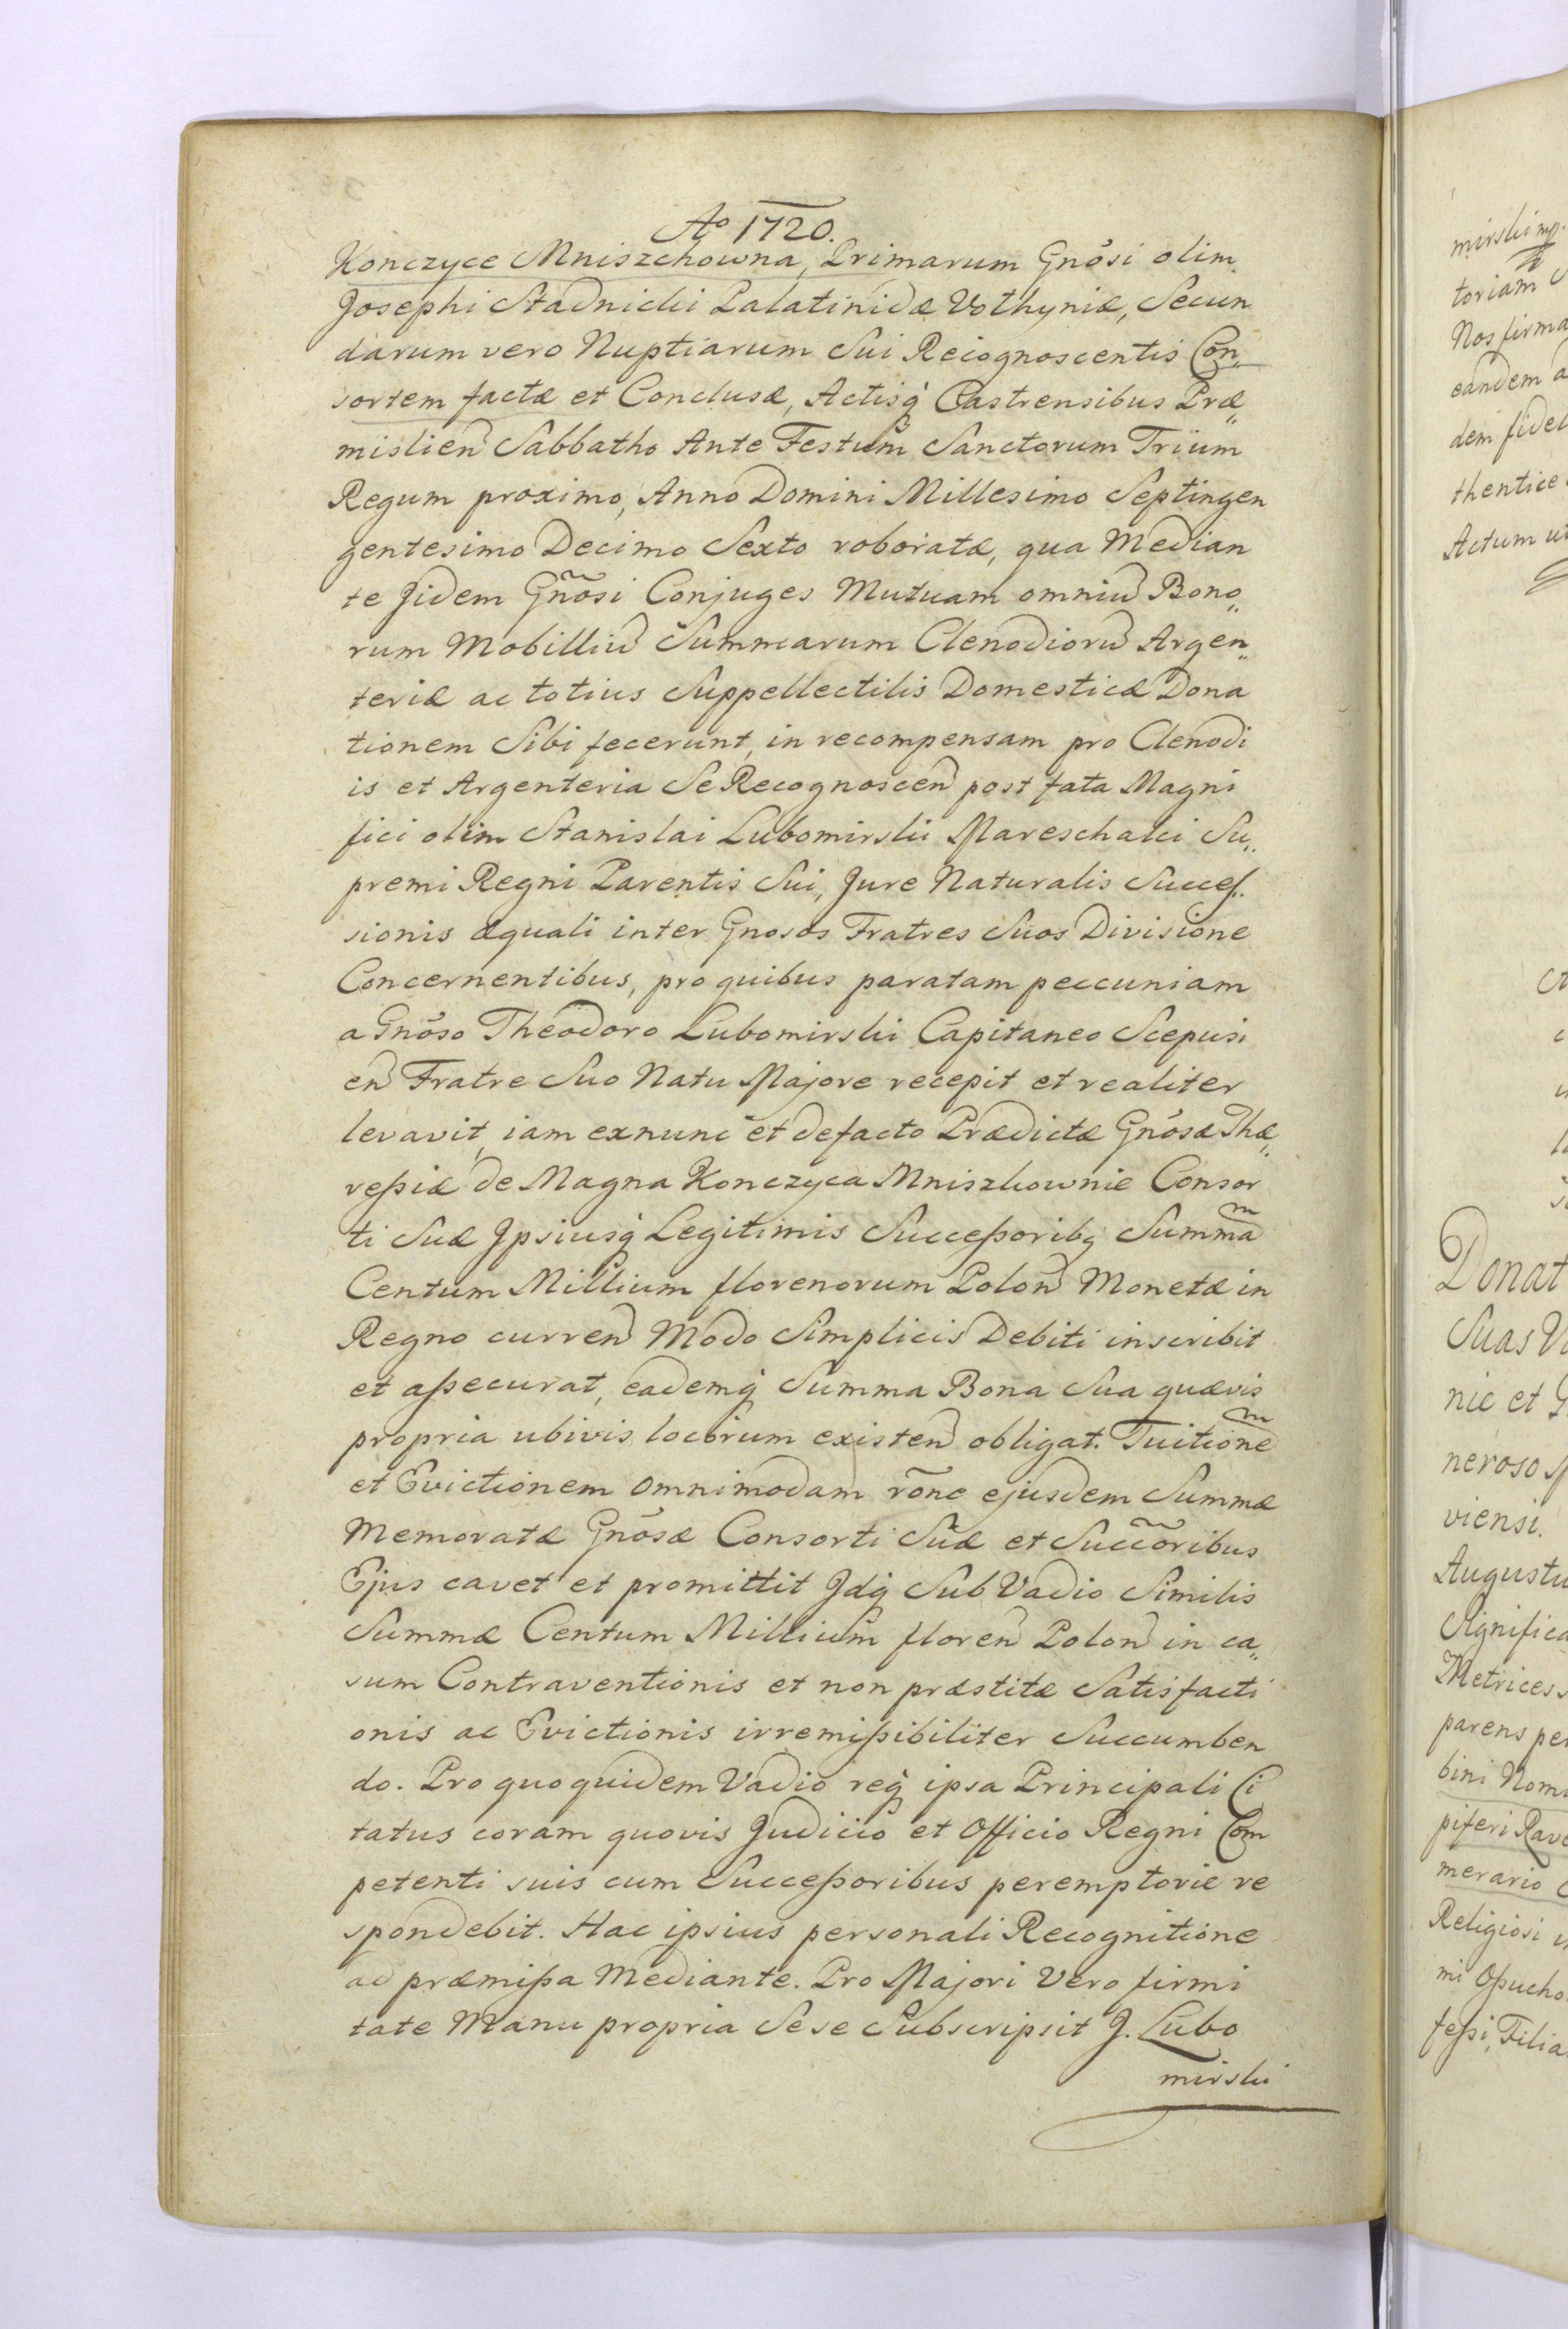 Ao 1720.
Konczyce Mniszchowna, Primarum Gnõsi olim
Josephi Stadnicki Palatinidæ Volhyniæ, Secun
darum vero Nuptiarum Sui Recognoscentis Con„
sortem factæ et Conclusæ, Actisq́ Castrensibus Præ„
mislien Sabbatho Ante Festum Sanctorum Trium
Regum proximo, Anno Domini Millesimo Septingen
gentesimo Decimo Sexto roboratæ, qua Median
te Jidem Gnõsi Conjuges Mutuam omniu Bono„
rum Mobilliu Summarum Clenodioru Argen„
teriæ ac totius Suppellectilis Domesticæ Dona
tionem Sibi fecerunt, in recompensam pro Clenodi
is et Argenteria Se Recognoscen post fata Magni
fici olim Stanislai Lubomirski Mareschalci Su„
premi Regni Parentis Sui, Jure Naturalis Succes„
sionis æquali inter Gnosos Fratres Suos Divisione
Concernentibus, pro quibus paratam peccuniam
a Gnõso Theodoro Lubomirski Capitaneo Scepusi
en Fratre Suo Natu Majore recepit et realiter
levavit, iam exnunc et defacto Prædictæ Gnõsæ Thæ„
reßiæ de Magna Konczyca Mniszkownie Consor
ti Suæ Jpsiusq́ Legitimis Succeßoribq Summam
Centum Millium florenorum Polon Monetæ in
Regno curren Modo Simplicis Debiti inscribit
et aßecurat, eademq́ Summa Bona Sua quævis
propria ubivis locorum existen obligat. Tuitionem
et Evictionem omnimodam rõne ejusdem Summæ
Memoratæ Gnõsæ Consorti Suæ et Succõribus
Ejus cavet et promittit Jdq́ Sub Vadio Similis
Summæ Centum Millium floren Polon in ca„
sum Contraventionis et non præstitæ Satisfacti
onis ac Evictionis irremißibiliter Succumben
do. Pro quo quidem Vadio req́ ipsa Principali Ci
tatus coram quovis Judicio et Officio Regni Com
petenti suis cum Succeßoribus peremptorie re
spondebit. Hac ipsius personali Recognitione
ad præmißa Mediante. Pro Majori Vero firmi
tate Manu propria Sese Subscripsit J. Lubo
mirski
mirski mp.
toriam
Nos firma
eandem a
dem fidel
thentice
Actum ut
Donat
Suas V
nie et G
neroso
viensi.
Augustu
Significa
Metrices
parens pe
bini Nom
piferi Rave
merario
Religiosi
mi Oßucho
feßi, Filia